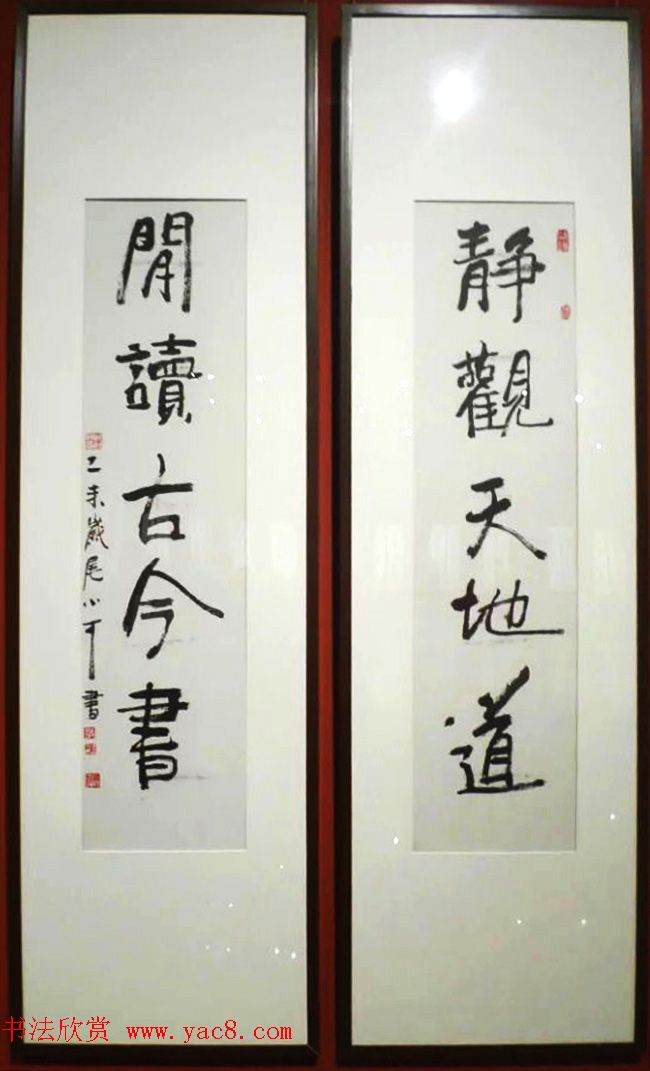 静觀天地道
閒讀古今書
乙未歲尾心可書
书法欣赏 www.yac8.com